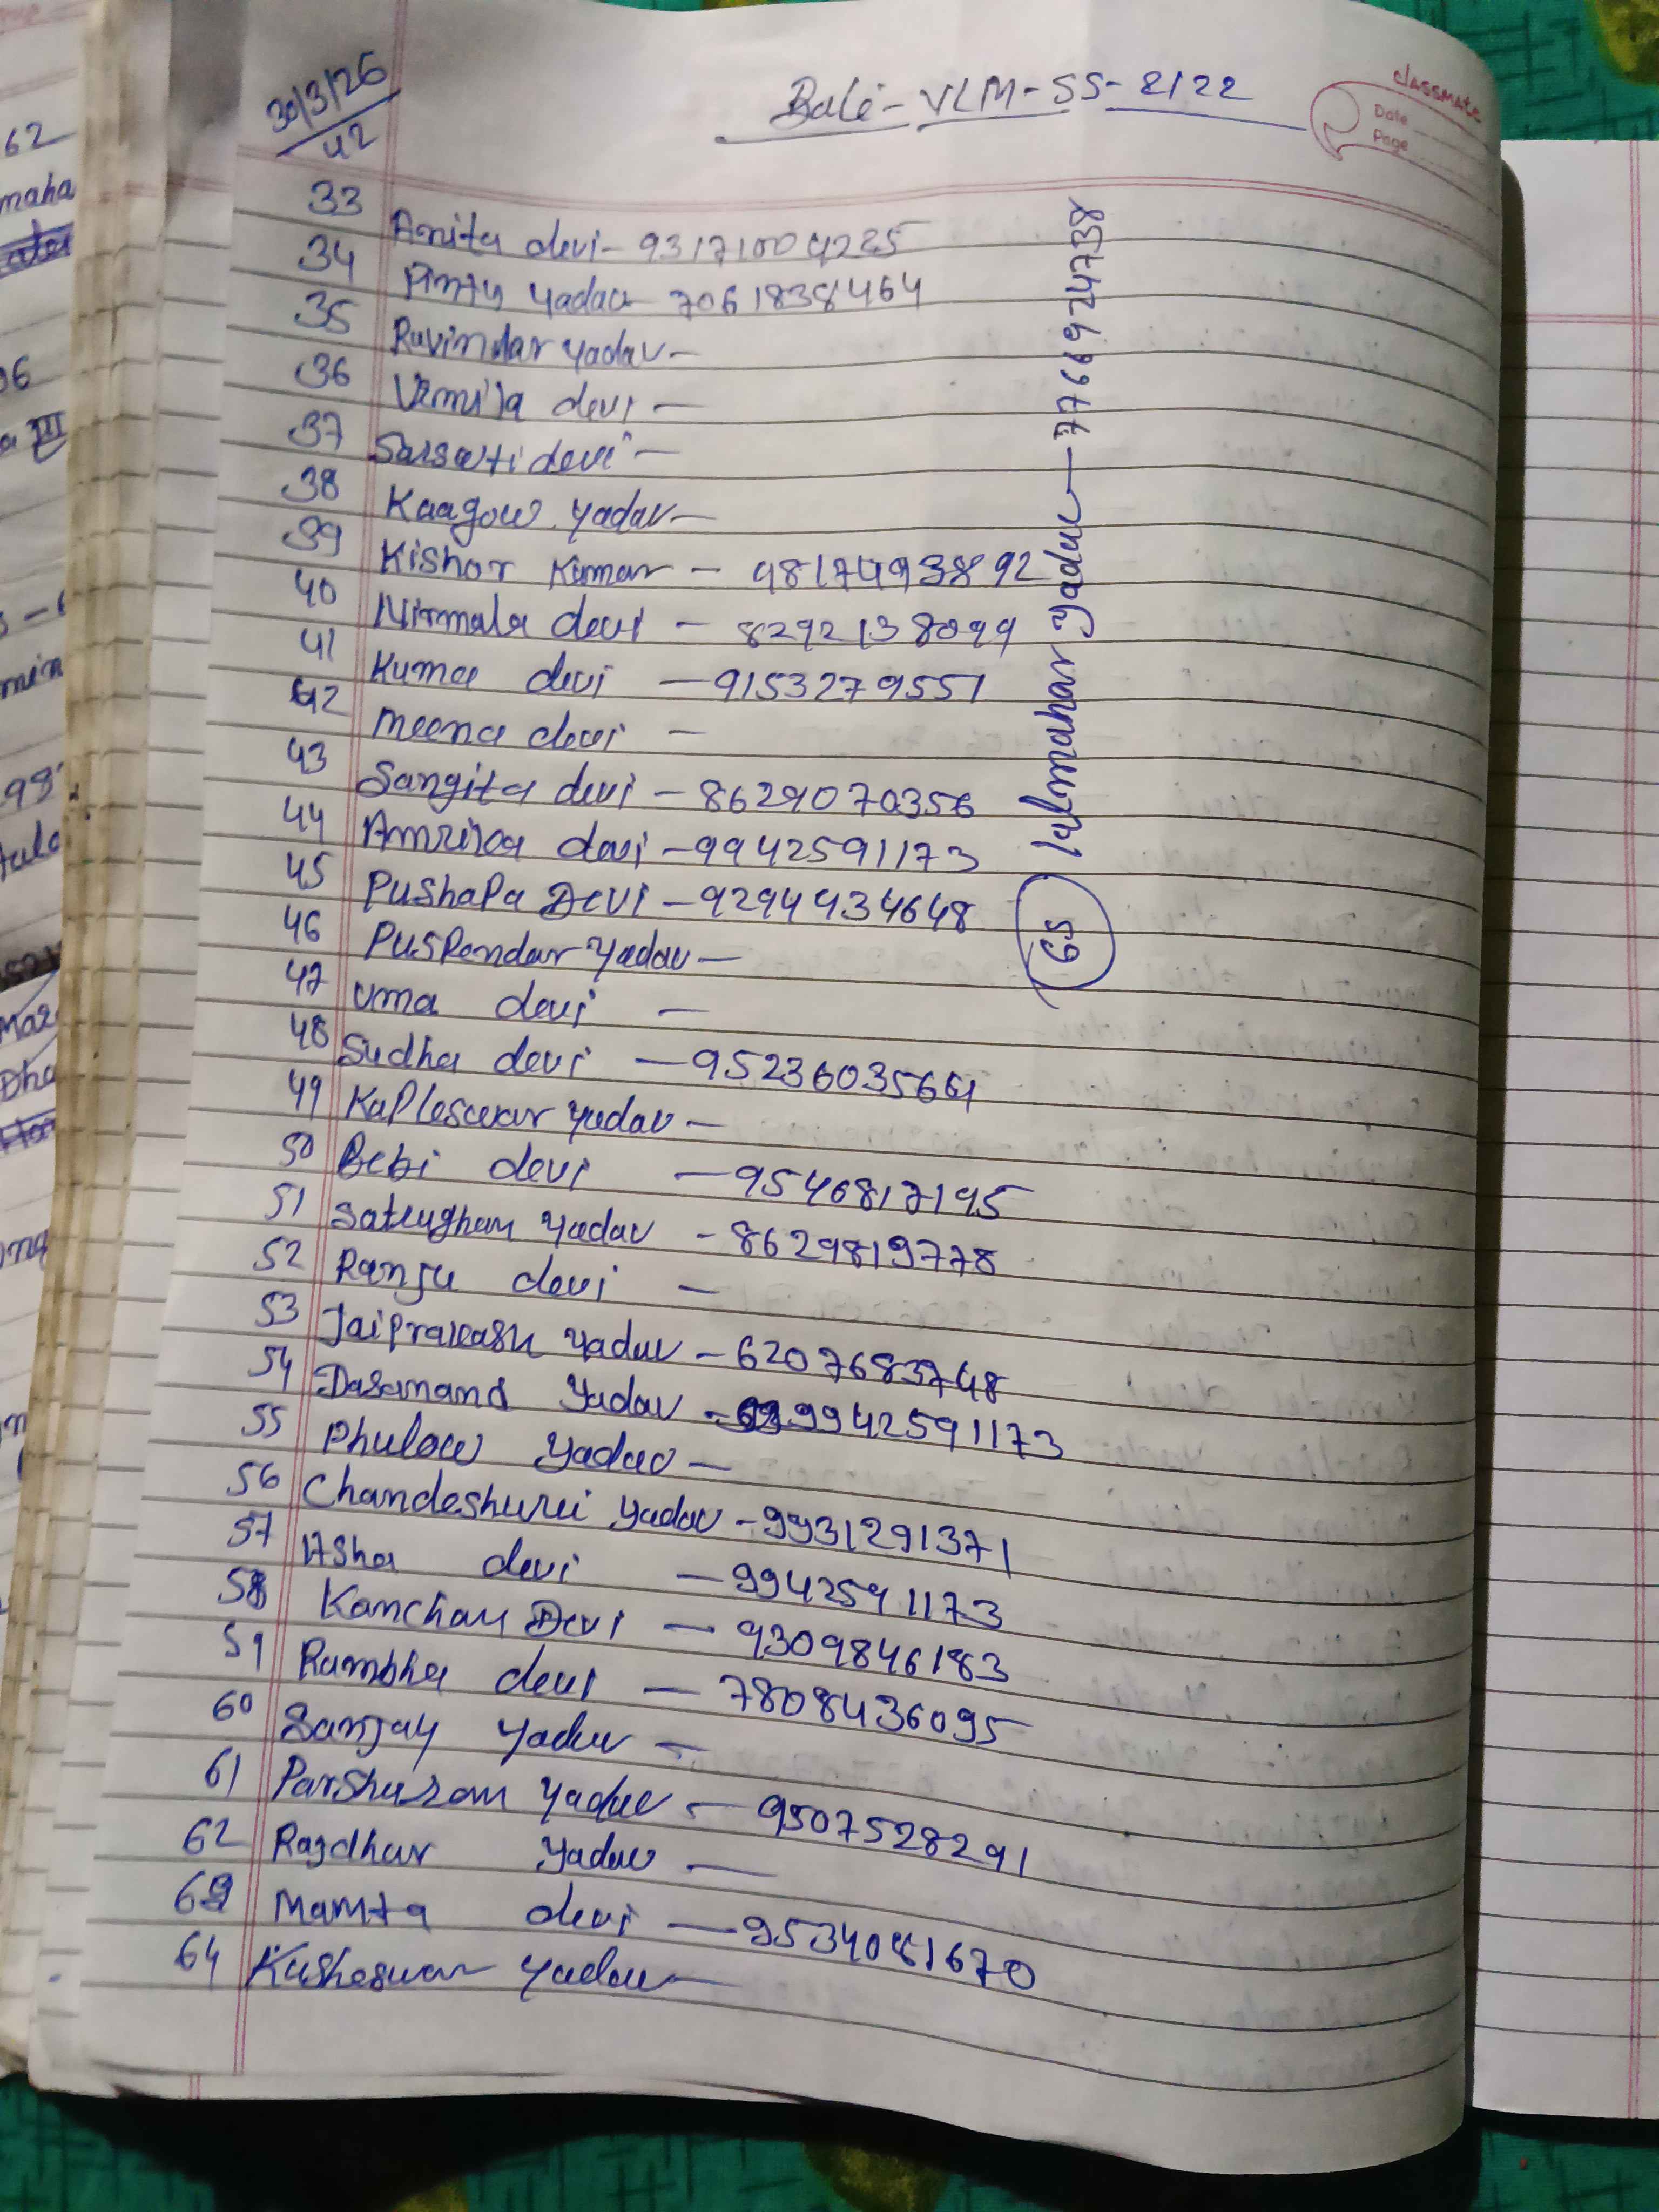 30/3/26
42
Bale - VLM - SS - 2122
classmate
Date
Page
33 Anita devi - 93171004285
34 Pinty Yadav - 7061838464
35 Ravindar Yadav -
36 Urmila devi -
37 Sarswti devi -
38 Kaagow Yadav -
39 Kishor Kumar - 98174993892
40 Nirmala devi - 8292138099
41 Kuma devi - 9153279551
42 meena devi -
43 Sangita devi - 8629070356
44 Amrika devi - 9942591173
45 PushaPa Devi - 92944934648
46 PusPendar Yadav -
47 uma devi -
48 Sudha devi - 95236035661
49 KaPleswar Yadav -
50 Bebi devi - 9546817195
51 Satrughan Yadav - 8629819778
52 Ranju devi -
53 Jaiprakash Yadav - 6207683748
54 Dasanand Yadav - 9942591173
55 Phulow Yadav -
56 Chandeshwri Yadav - 9931291371
57 Asha devi - 9942591173
58 Kanchan Devi - 9309846183
59 Rambha devi - 7808436095
60 Sanjay Yadav -
61 Parshuram Yadav - 9507528291
62 Rajdhar Yadav -
63 Mamta devi - 9534081670
64 Kusheswar Yadav -
65 lalmohar Yadav - 7766924738